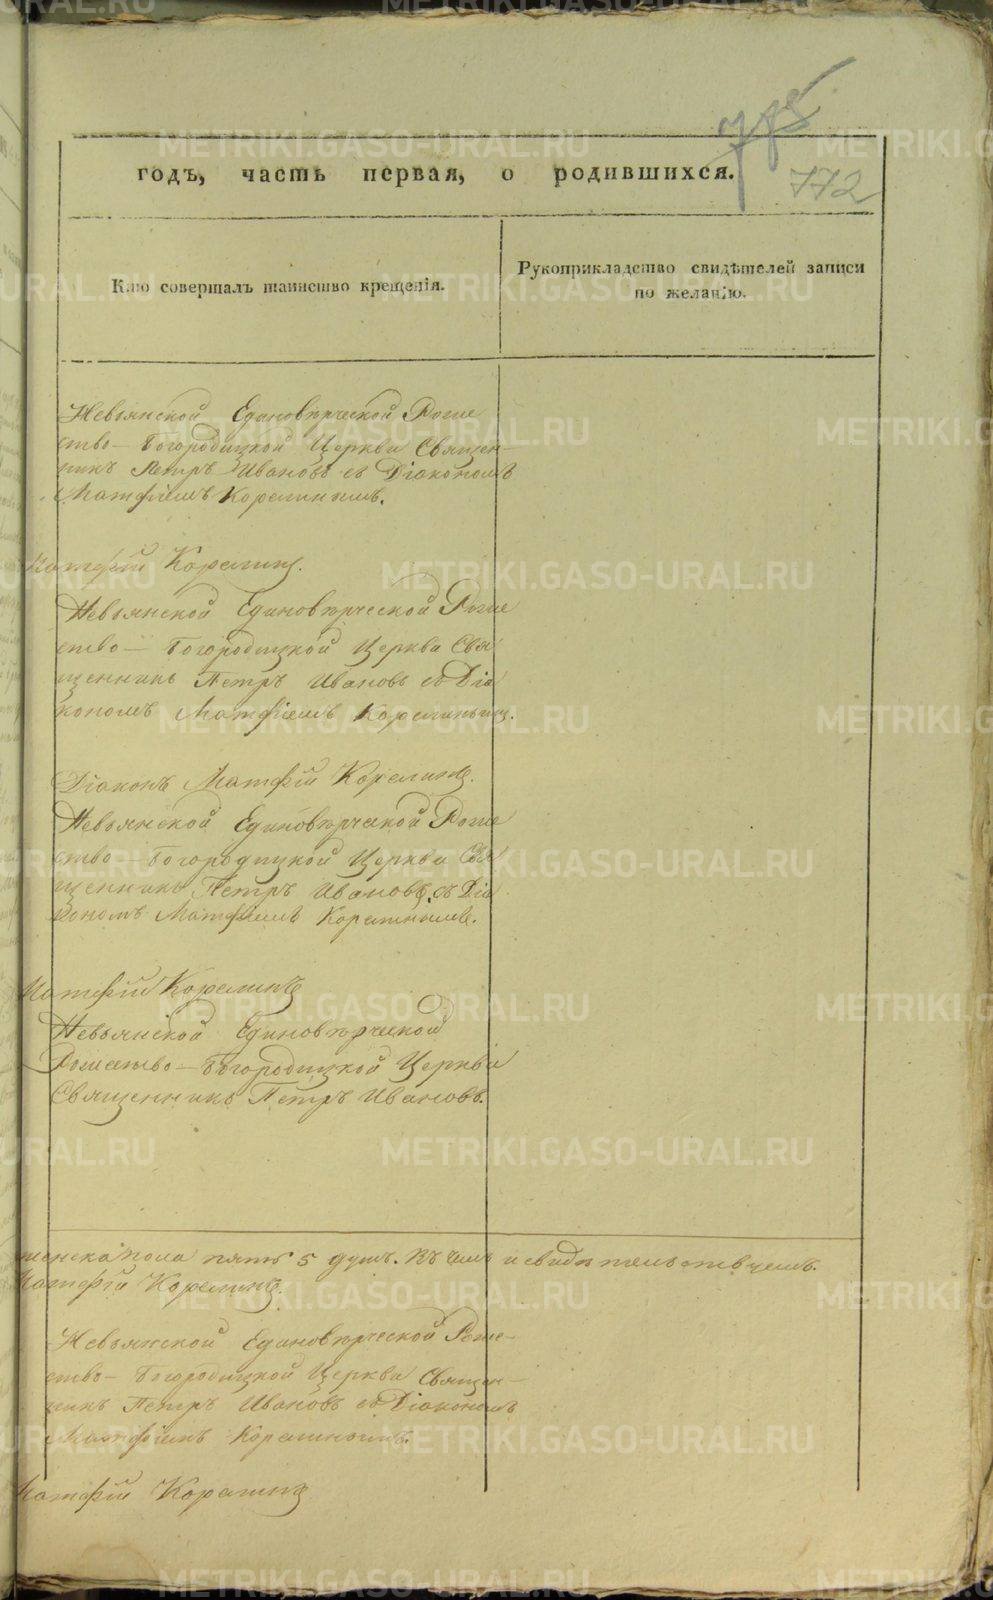 772
годъ, часть первая, о родившихся.
Кто совершалъ таинство крещенія.
Рукоприкладство свидѣтелей записи
по желанію.
Невьянской Единовѣрческой Рожде
ство-Богородицкой Церкви Священ-
никъ Петръ Ивановъ съ Діакономъ
Матфіемъ Корелинымъ.
Матфій Корелинъ.
Невьянской Единовѣрческой Рожде
ство-Богородицкой Церкви Свя
щенникъ Петръ Ивановъ съ Діа
кономъ Матфіемъ Корелинымъ.
Діаконъ Матфій Корелинъ.
Невьянской Единовѣрческой Рожде
ство-Богородицкой Церкви Свя
щенникъ Петръ Ивановъ съ Діа
кономъ Матфіемъ Корелинымъ.
Матфій Корелинъ
Невьянской Единовѣрческой
Рождество-Богородицкой Церкви
Священникъ Петръ Ивановъ.
женска пола пять 5 душъ. Въ чемъ и свидѣтельствуемъ.
Матфій Корелинъ.
Невьянской Единовѣрческой Рожде-
ство-Богородицкой Церкви Священ-
никъ Петръ Ивановъ съ Діакономъ
Матфіемъ Корелинымъ.
Матфій Корелинъ
METRIKI.GASO-URAL.RU